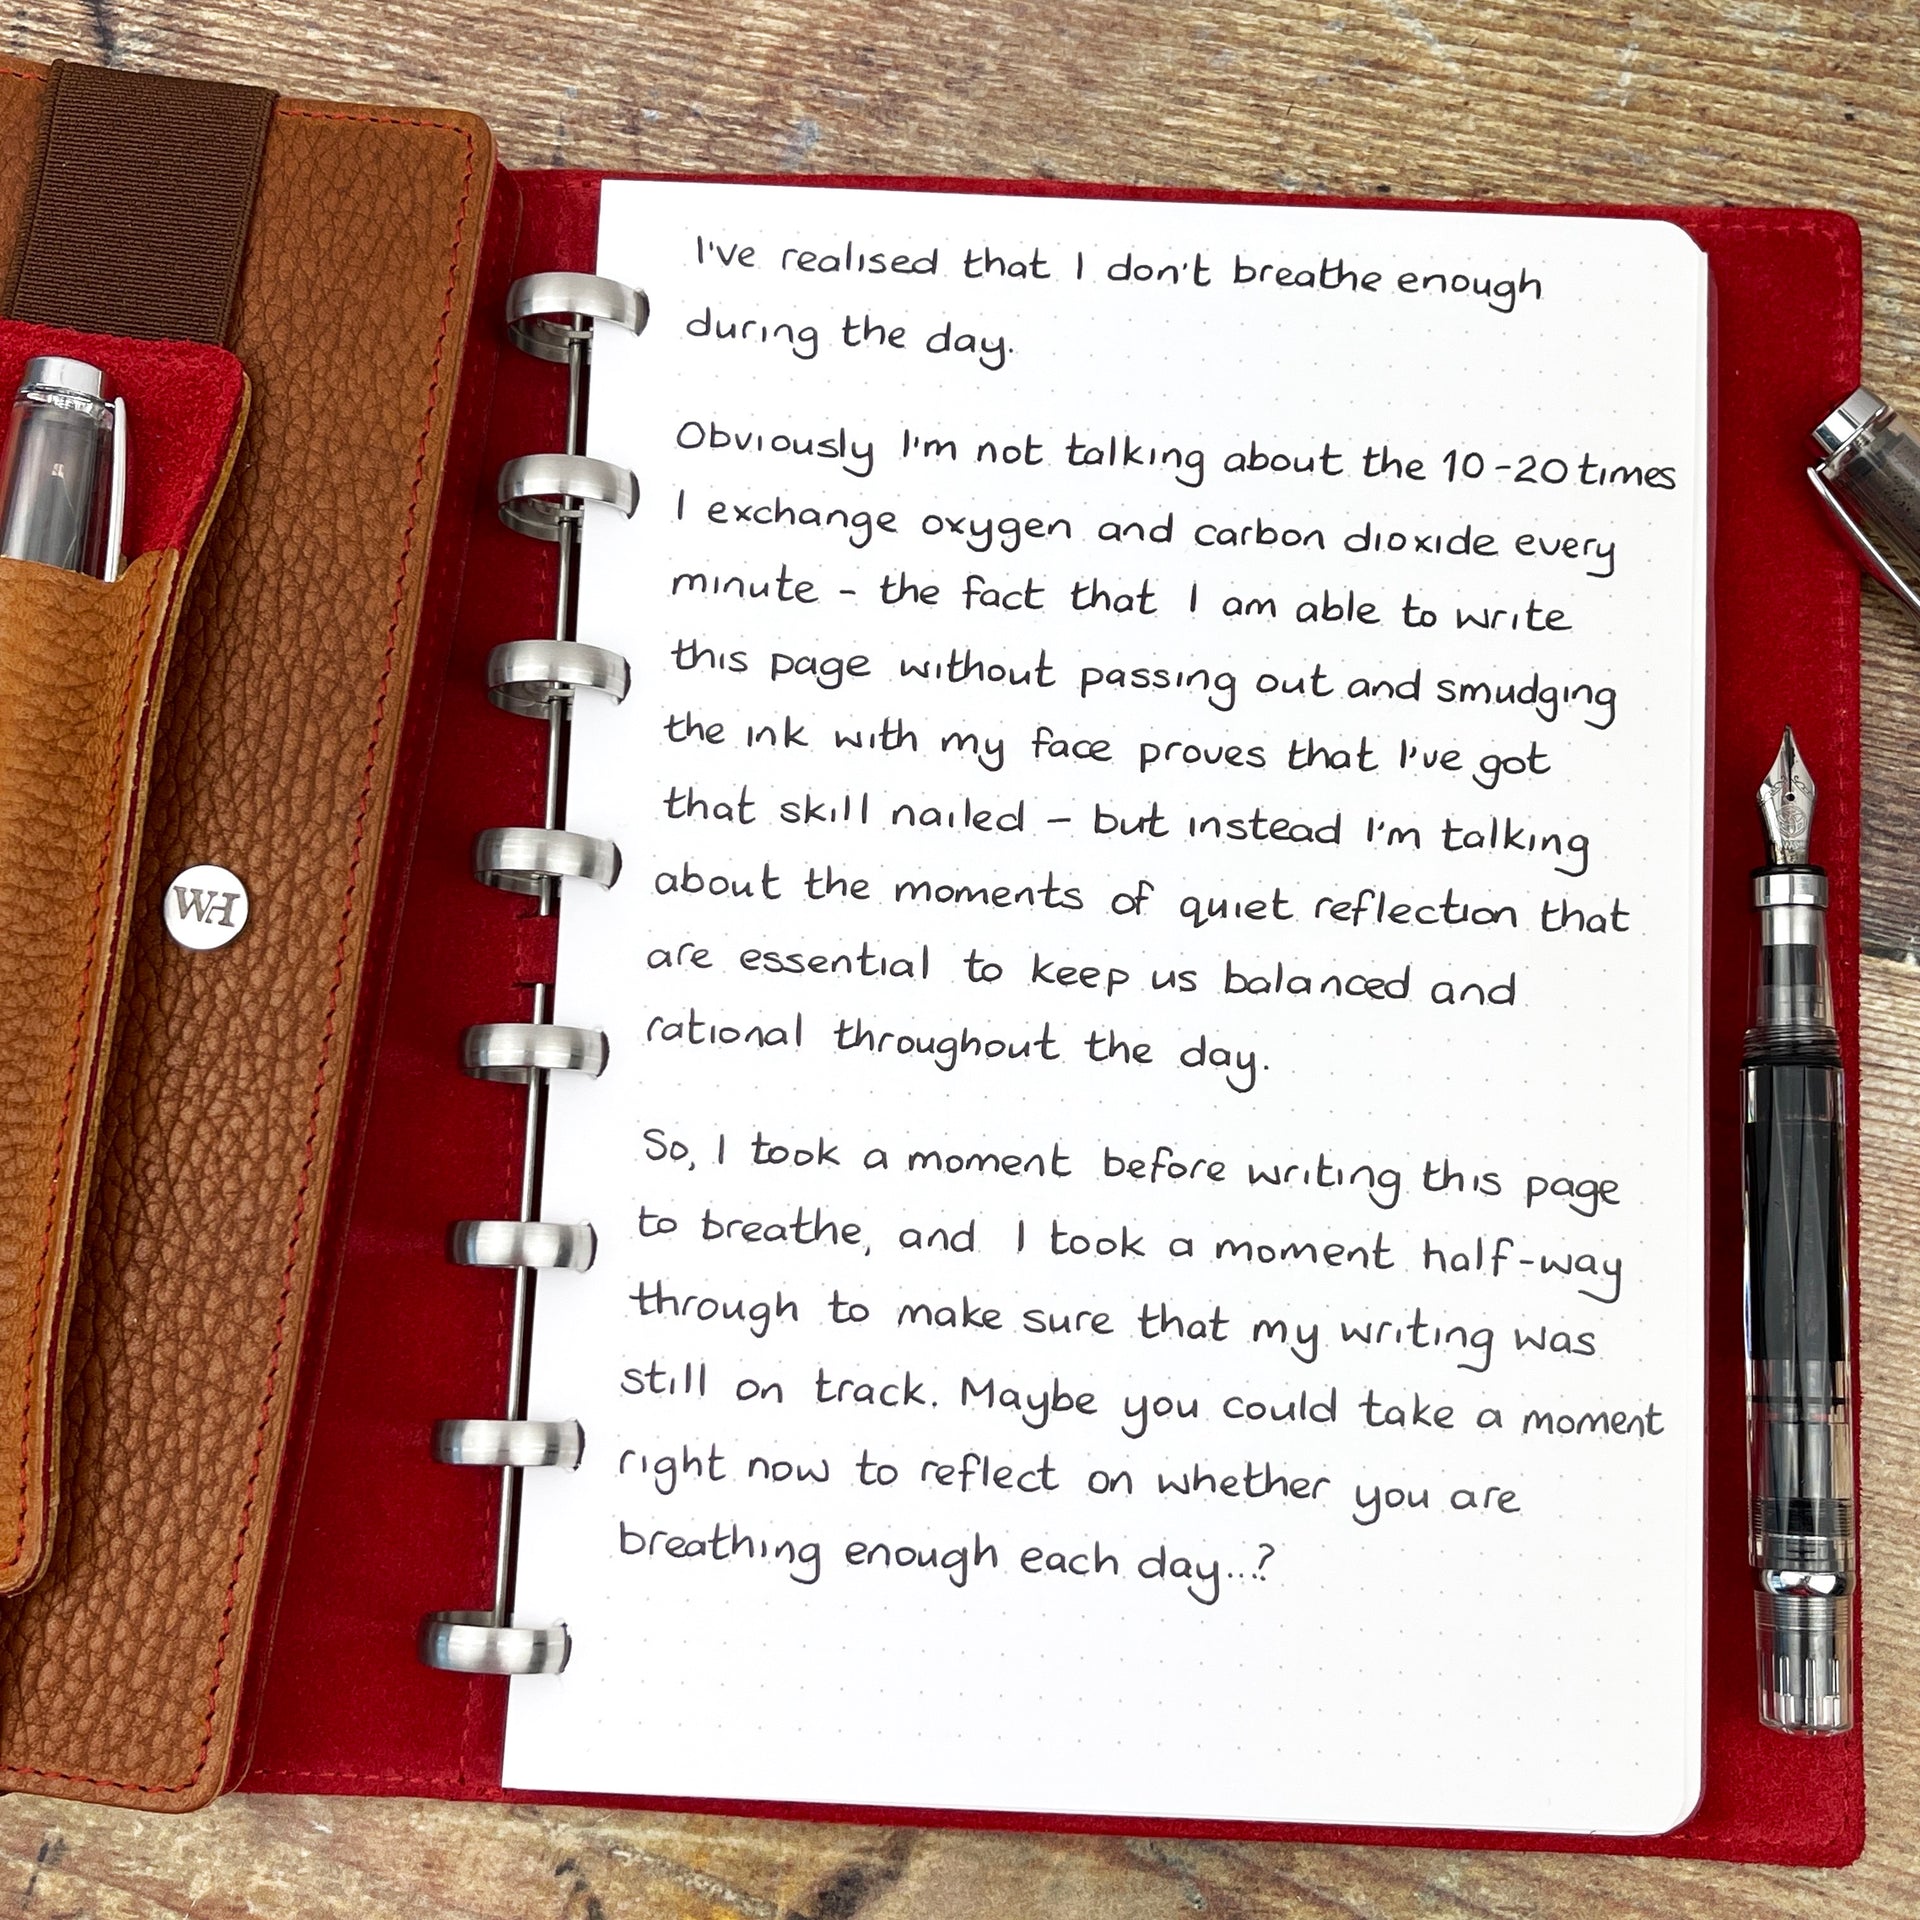 I've realised that I don't breathe enough
during the day.
Obviously I'm not talking about the 10-20 times
I exchange oxygen and carbon dioxide every
minute - the fact that I am able to write
this page without passing out and smudging
the ink with my face proves that I've got
that skill nailed - but instead I'm talking
about the moments of quiet reflection that
are essential to keep us balanced and
rational throughout the day.
So, I took a moment before writing this page
to breathe, and I took a moment half-way
through to make sure that my writing was
still on track. Maybe you could take a moment
right now to reflect on whether you are
breathing enough each day...?
WH